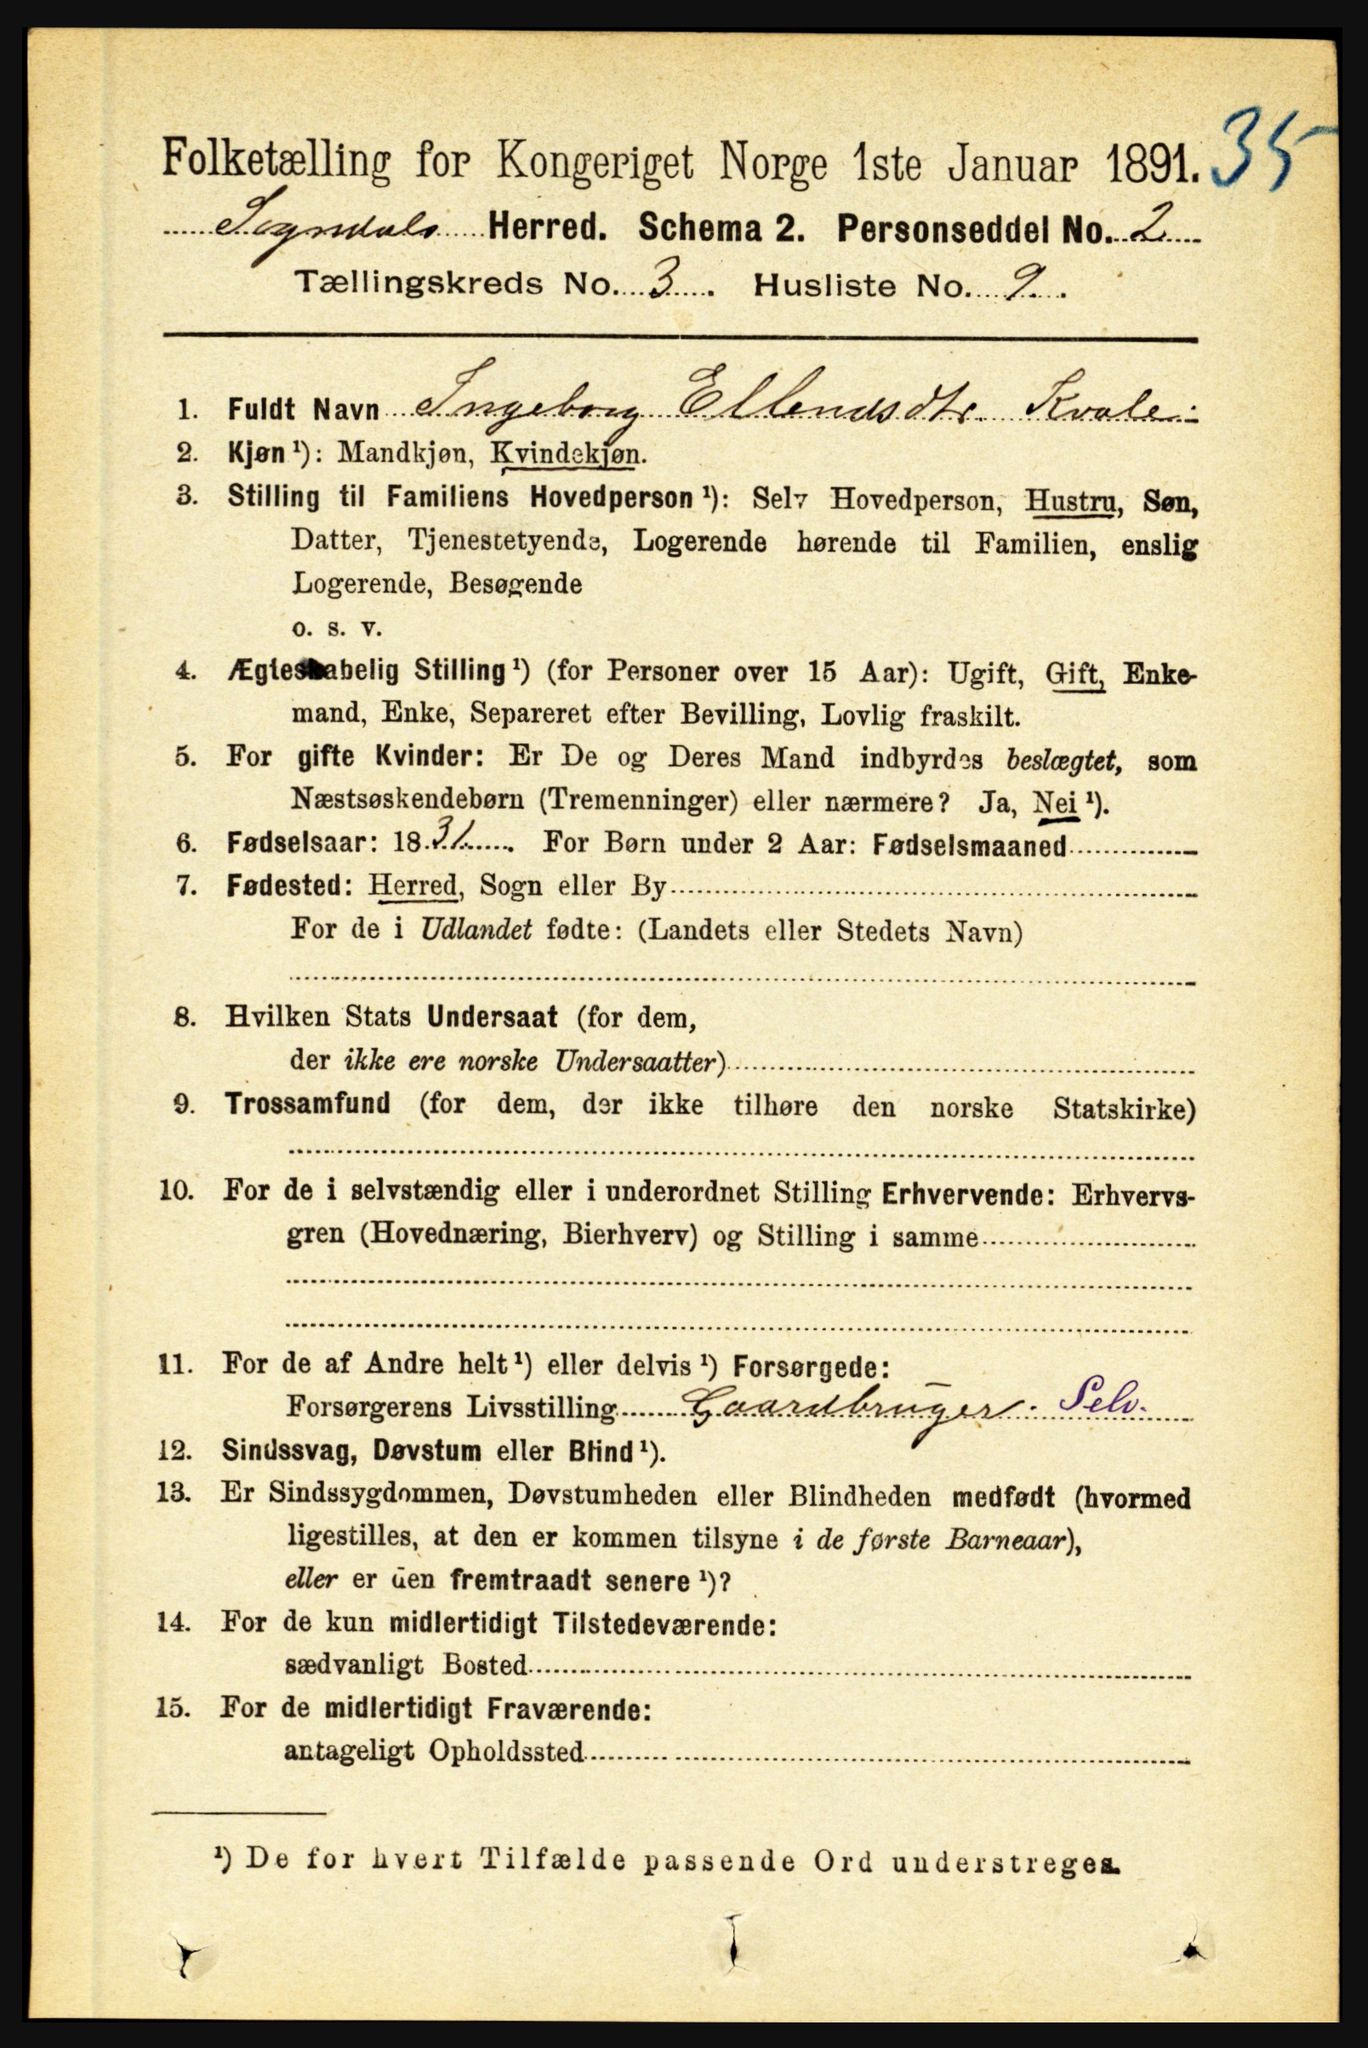 35
Folketælling for Kongeriget Norge 1ste Januar 1891.
Sogndals Herred. Schema 2. Personseddel No. 2
Tællingskreds No. 3. Husliste No. 9.
1. Fuldt Navn Ingeborg Ellendsdtr. Kvale.
2. Kjøn ¹): Mandkjøn, Kvindekjøn.
3. Stilling til Familiens Hovedperson ¹): Selv Hovedperson, Hustru, Søn,
Datter, Tjenestetyende, Logerende hørende til Familien, enslig
Logerende, Besøgende
o. s. v.
4. Ægteskabelig Stilling ¹) (for Personer over 15 Aar): Ugift, Gift, Enke-
mand, Enke, Separeret efter Bevilling, Lovlig fraskilt.
5. For gifte Kvinder: Er De og Deres Mand indbyrdes beslægtet, som
Næstsøskendebørn (Tremenninger) eller nærmere? Ja, Nei ¹).
6. Fødselsaar: 1831. For Børn under 2 Aar: Fødselsmaaned
7. Fødested: Herred, Sogn eller By
For de i Udlandet fødte: (Landets eller Stedets Navn)
8. Hvilken Stats Undersaat (for dem,
der ikke ere norske Undersaatter)
9. Trossamfund (for dem, der ikke tilhøre den norske Statskirke)
10. For de i selvstændig eller i underordnet Stilling Erhvervende: Erhvervs-
gren (Hovednæring, Bierhverv) og Stilling i samme
11. For de af Andre helt ¹) eller delvis ¹) Forsørgede:
Forsørgerens Livsstilling Gaardbruger. Selv.
12. Sindssvag, Døvstum eller Blind ¹).
13. Er Sindssygdommen, Døvstumheden eller Blindheden medfødt (hvormed
ligestilles, at den er kommen tilsyne i de første Barneaar),
eller er den fremtraadt senere ¹)?
14. For de kun midlertidigt Tilstedeværende:
sædvanligt Bosted
15. For de midlertidigt Fraværende:
antageligt Opholdssted
¹) De for hvert Tilfælde passende Ord understreges.